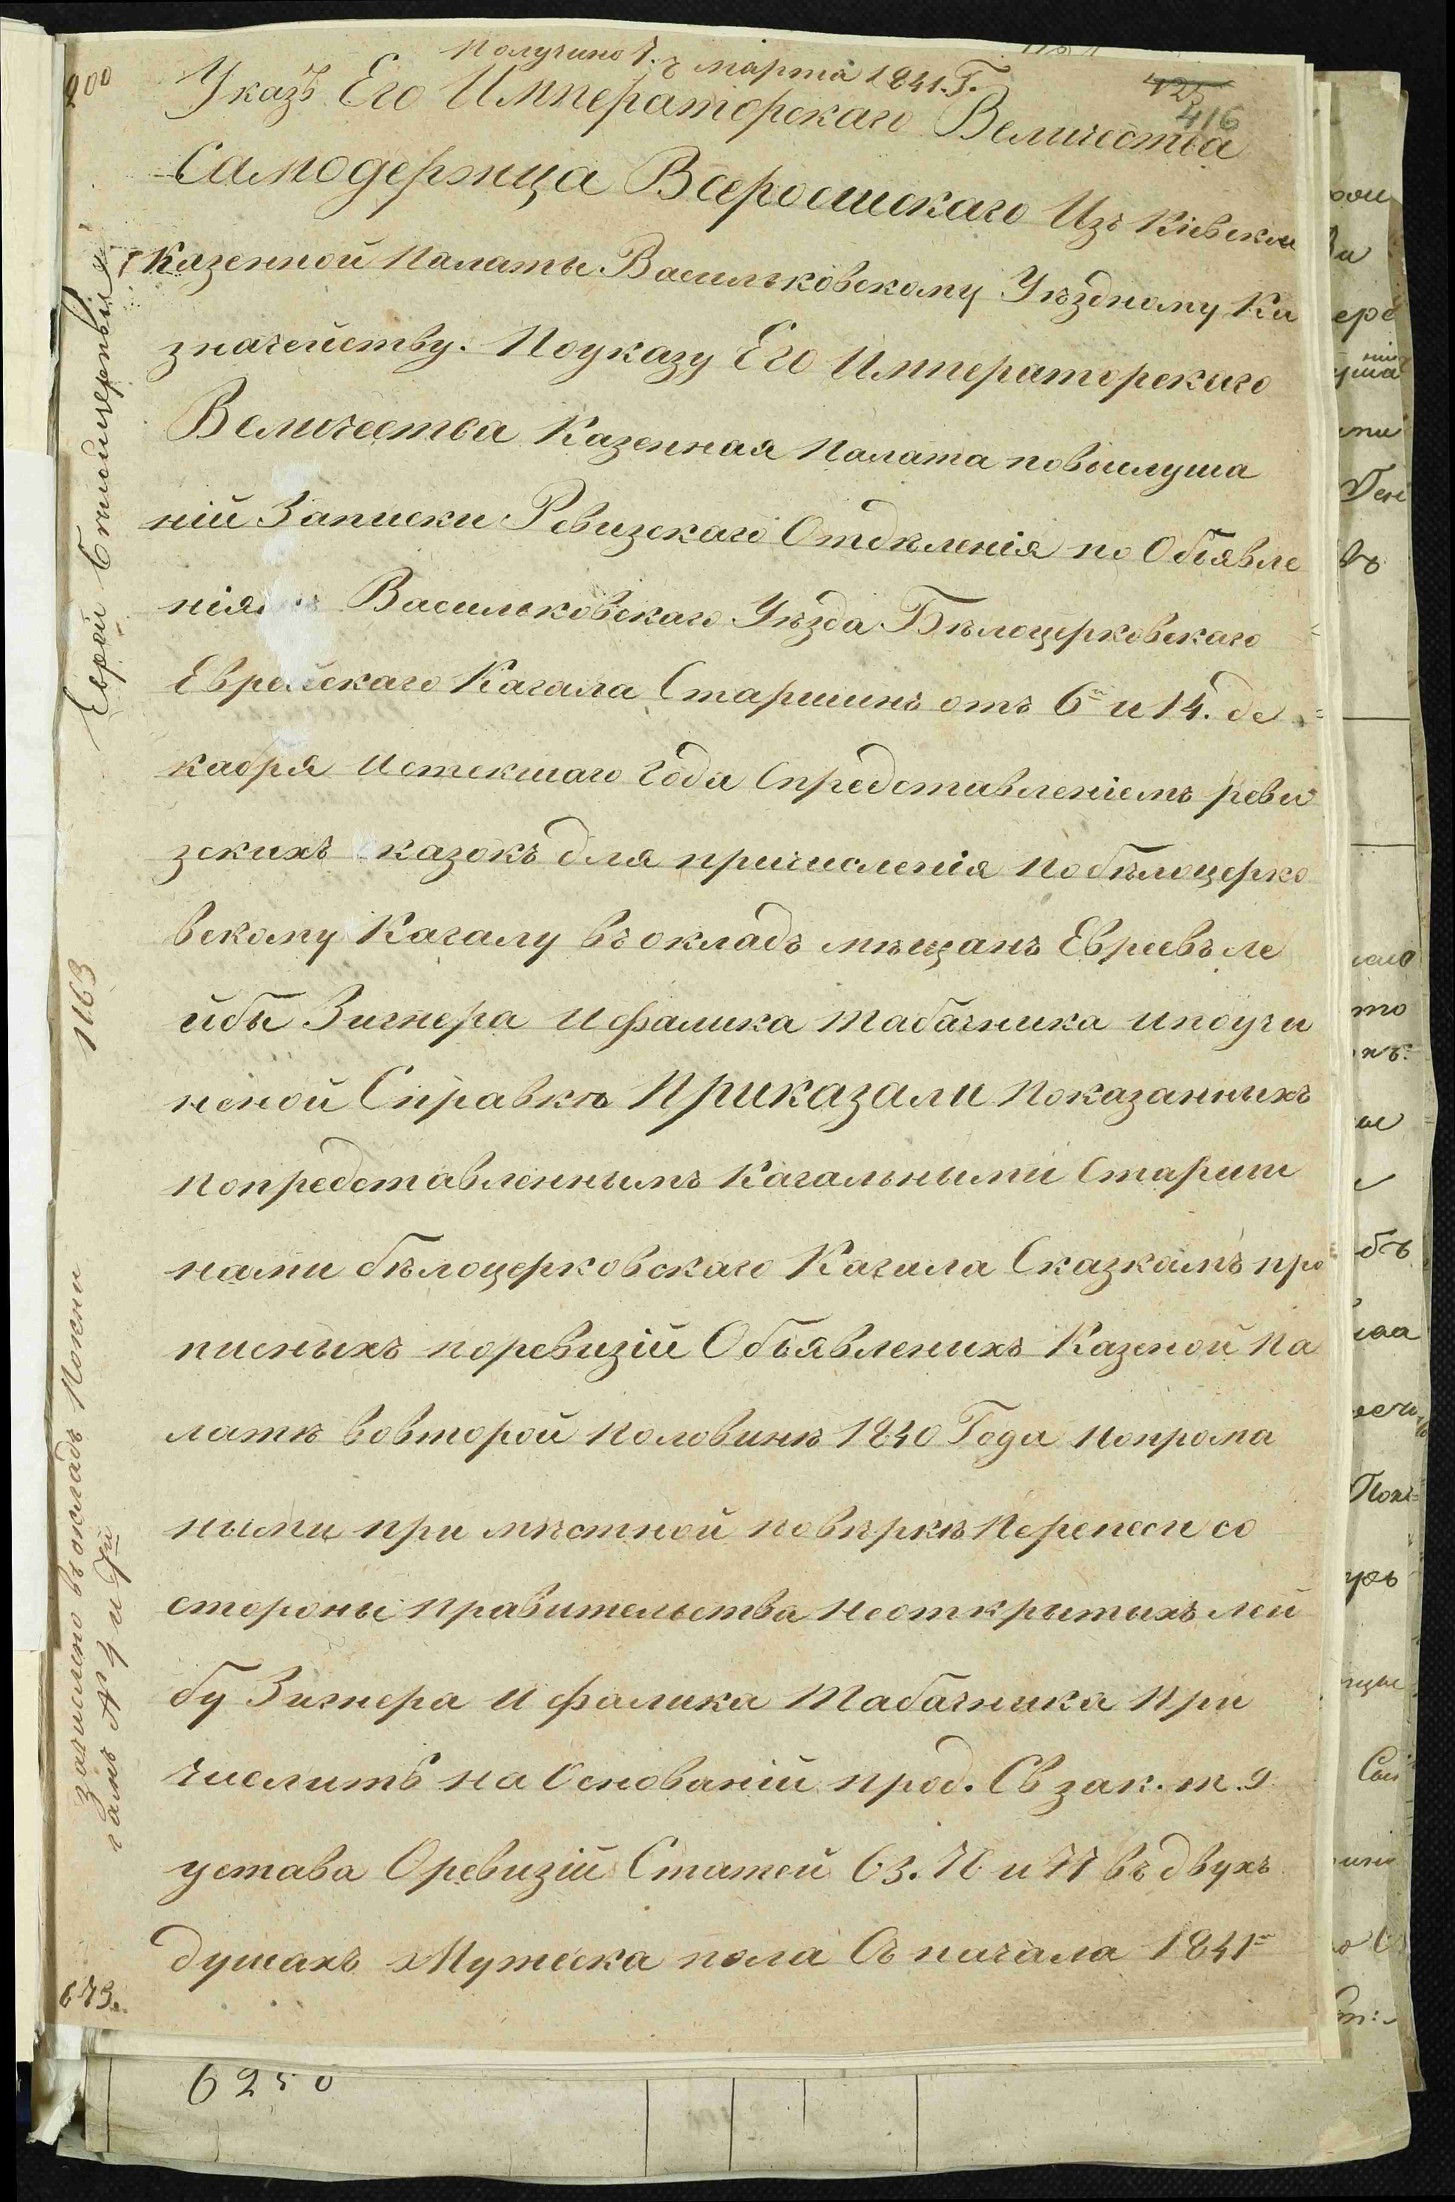 Получино 7.г марта 1841.Г.
Указъ Его Императорскаго Величества
416
Самодержца Всеросийскаго Изъ Кіевской
Казенной Палаты Васильковскому Уѣздному Ка
значейству. Поуказу Его Императорскаго
Величества Казенная Палата повыслуша
ніи Записки Ревизскаго Отдѣленія по Объявле
нія Васильковскаго Уѣзда Бѣлоцерковскаго
Еврейскаго Кагала Старшинъ отъ 6 и 14. де
кабря истекшаго Года Спредставленіемъ реви
зскихъ казокъ для причисленія побѣлоцерко
вскому Кагалу въ окладъ мѣщанъ Евреевъ ле
йбы Зигнера и фалика табачника ипоучи
неной Справкѣ Приказали Показанныхъ
Попредставленнымъ Кагальными Старши
нами бѣлоцерковскаго Кагала Сказкамъ про
писныхъ поревизіи Объявленихъ Казеной Па
латѣ вовторой Половинѣ 1840 Года Попрома
ными при мѣстной повѣркѣ Переписи со
стороны Правительства Неоткрытихъ лей
бу Зигнера и фалика Табачника При
числить на Основаніи прод. Св зак. т. 9
устава Оревизіи Статей 63. 76 и 77 въ двухъ
душахъ Мужеска пола Съ начала 1841
Еврей
1163
зачислено въ окладъ Покни
гамъ № 4 и 7й
673.
6250